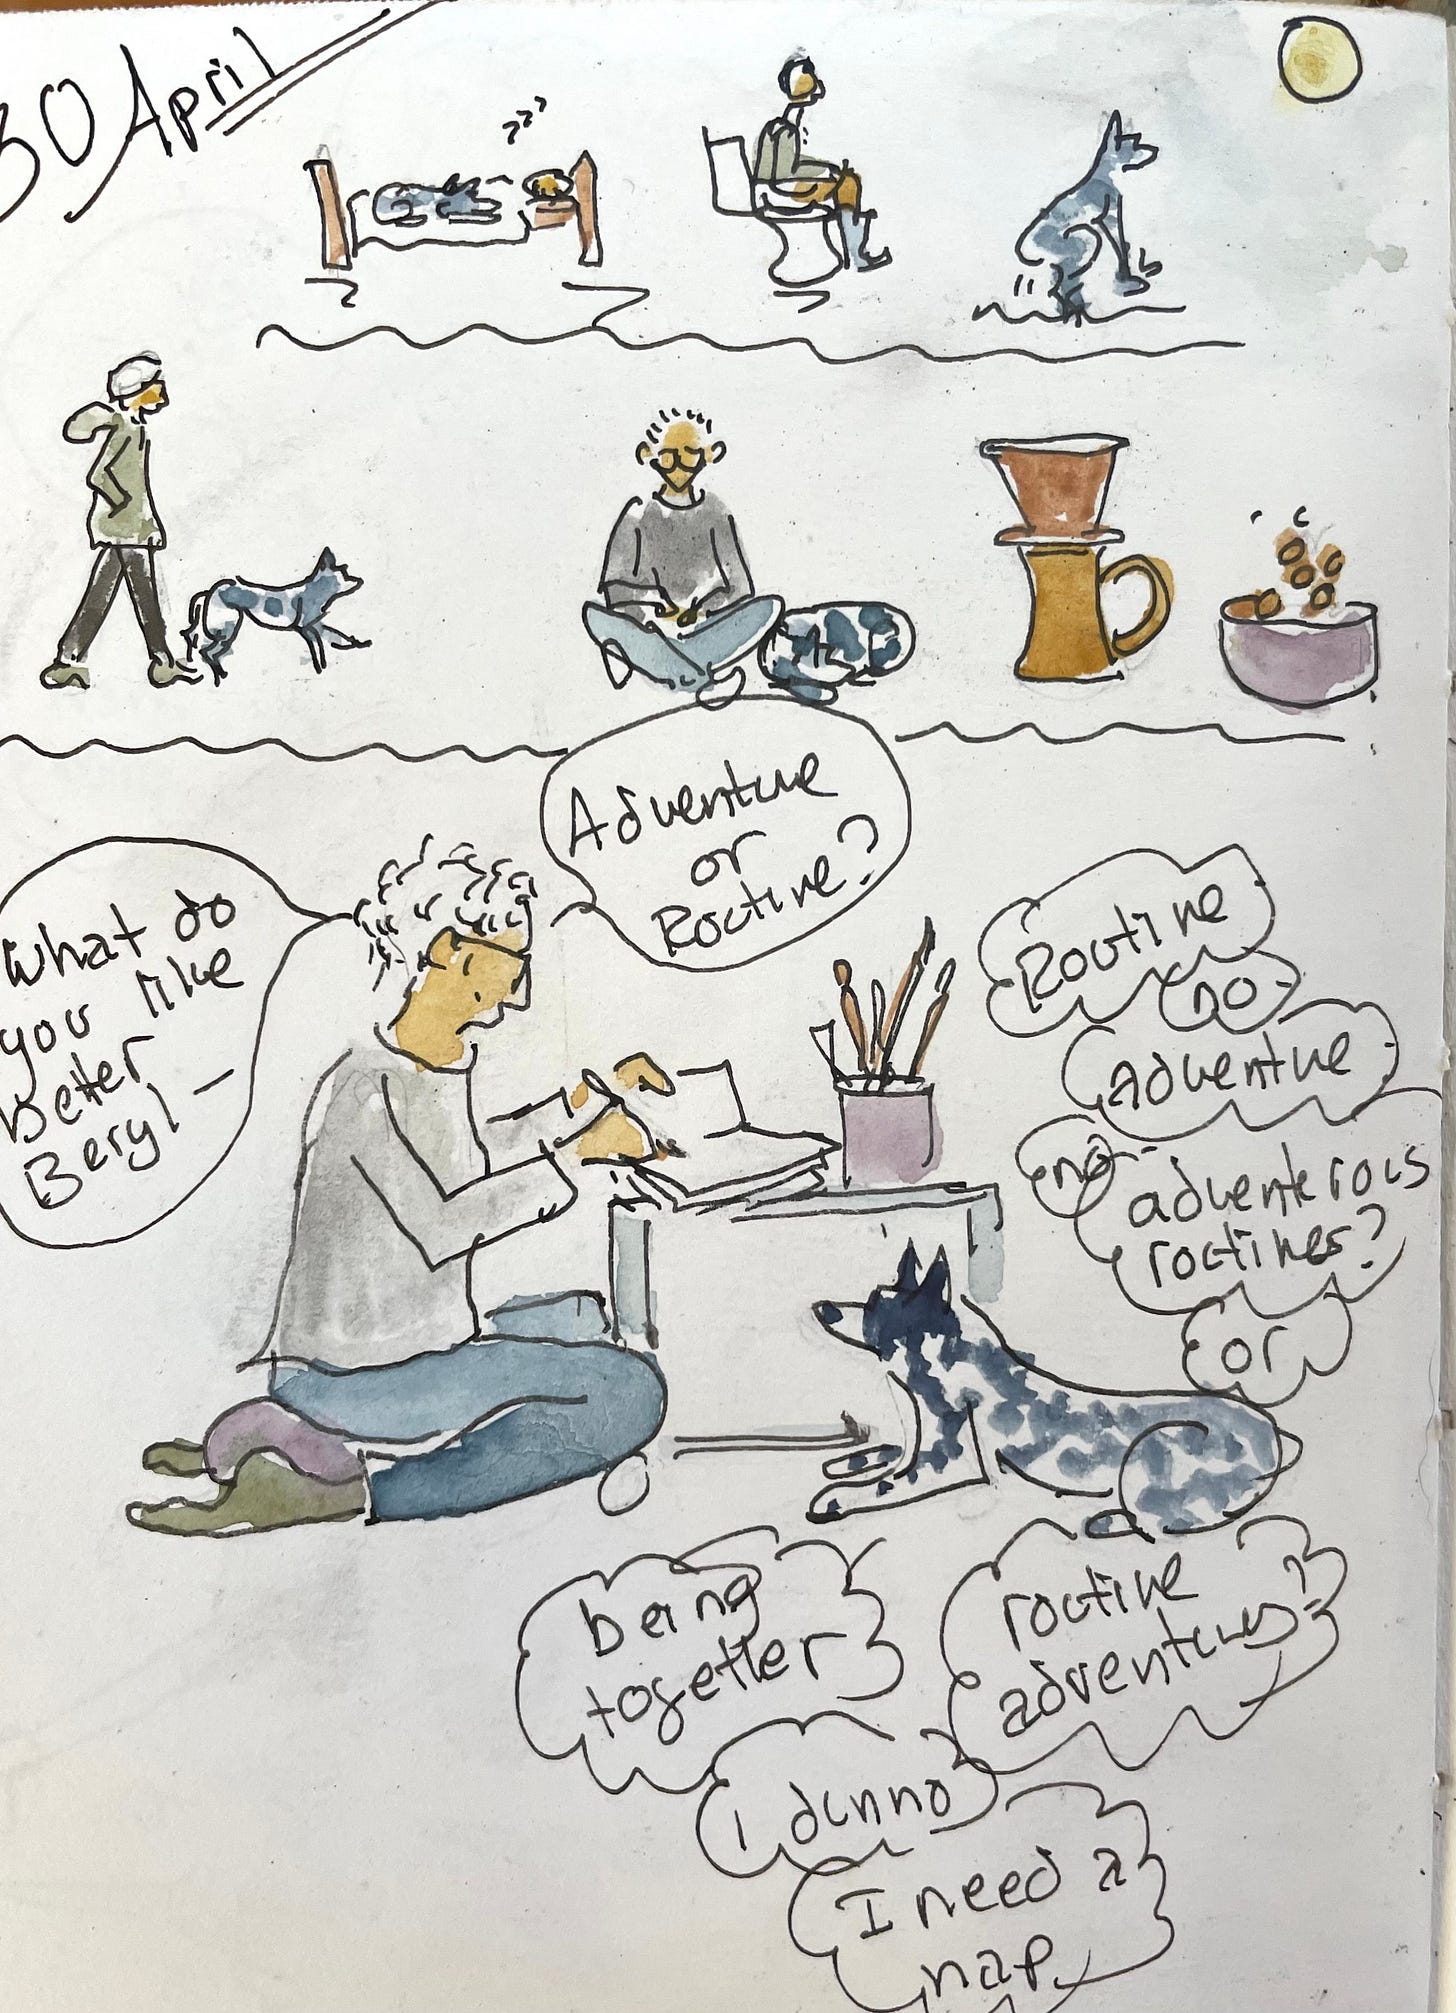 30 April
zzz
Adventure
or
Routine?
What do
you like
better
Beryl -
Routine
no
adventure
no
adventerous
routines?
or
routine
adventures?
being
together
i dunno
I need a
nap